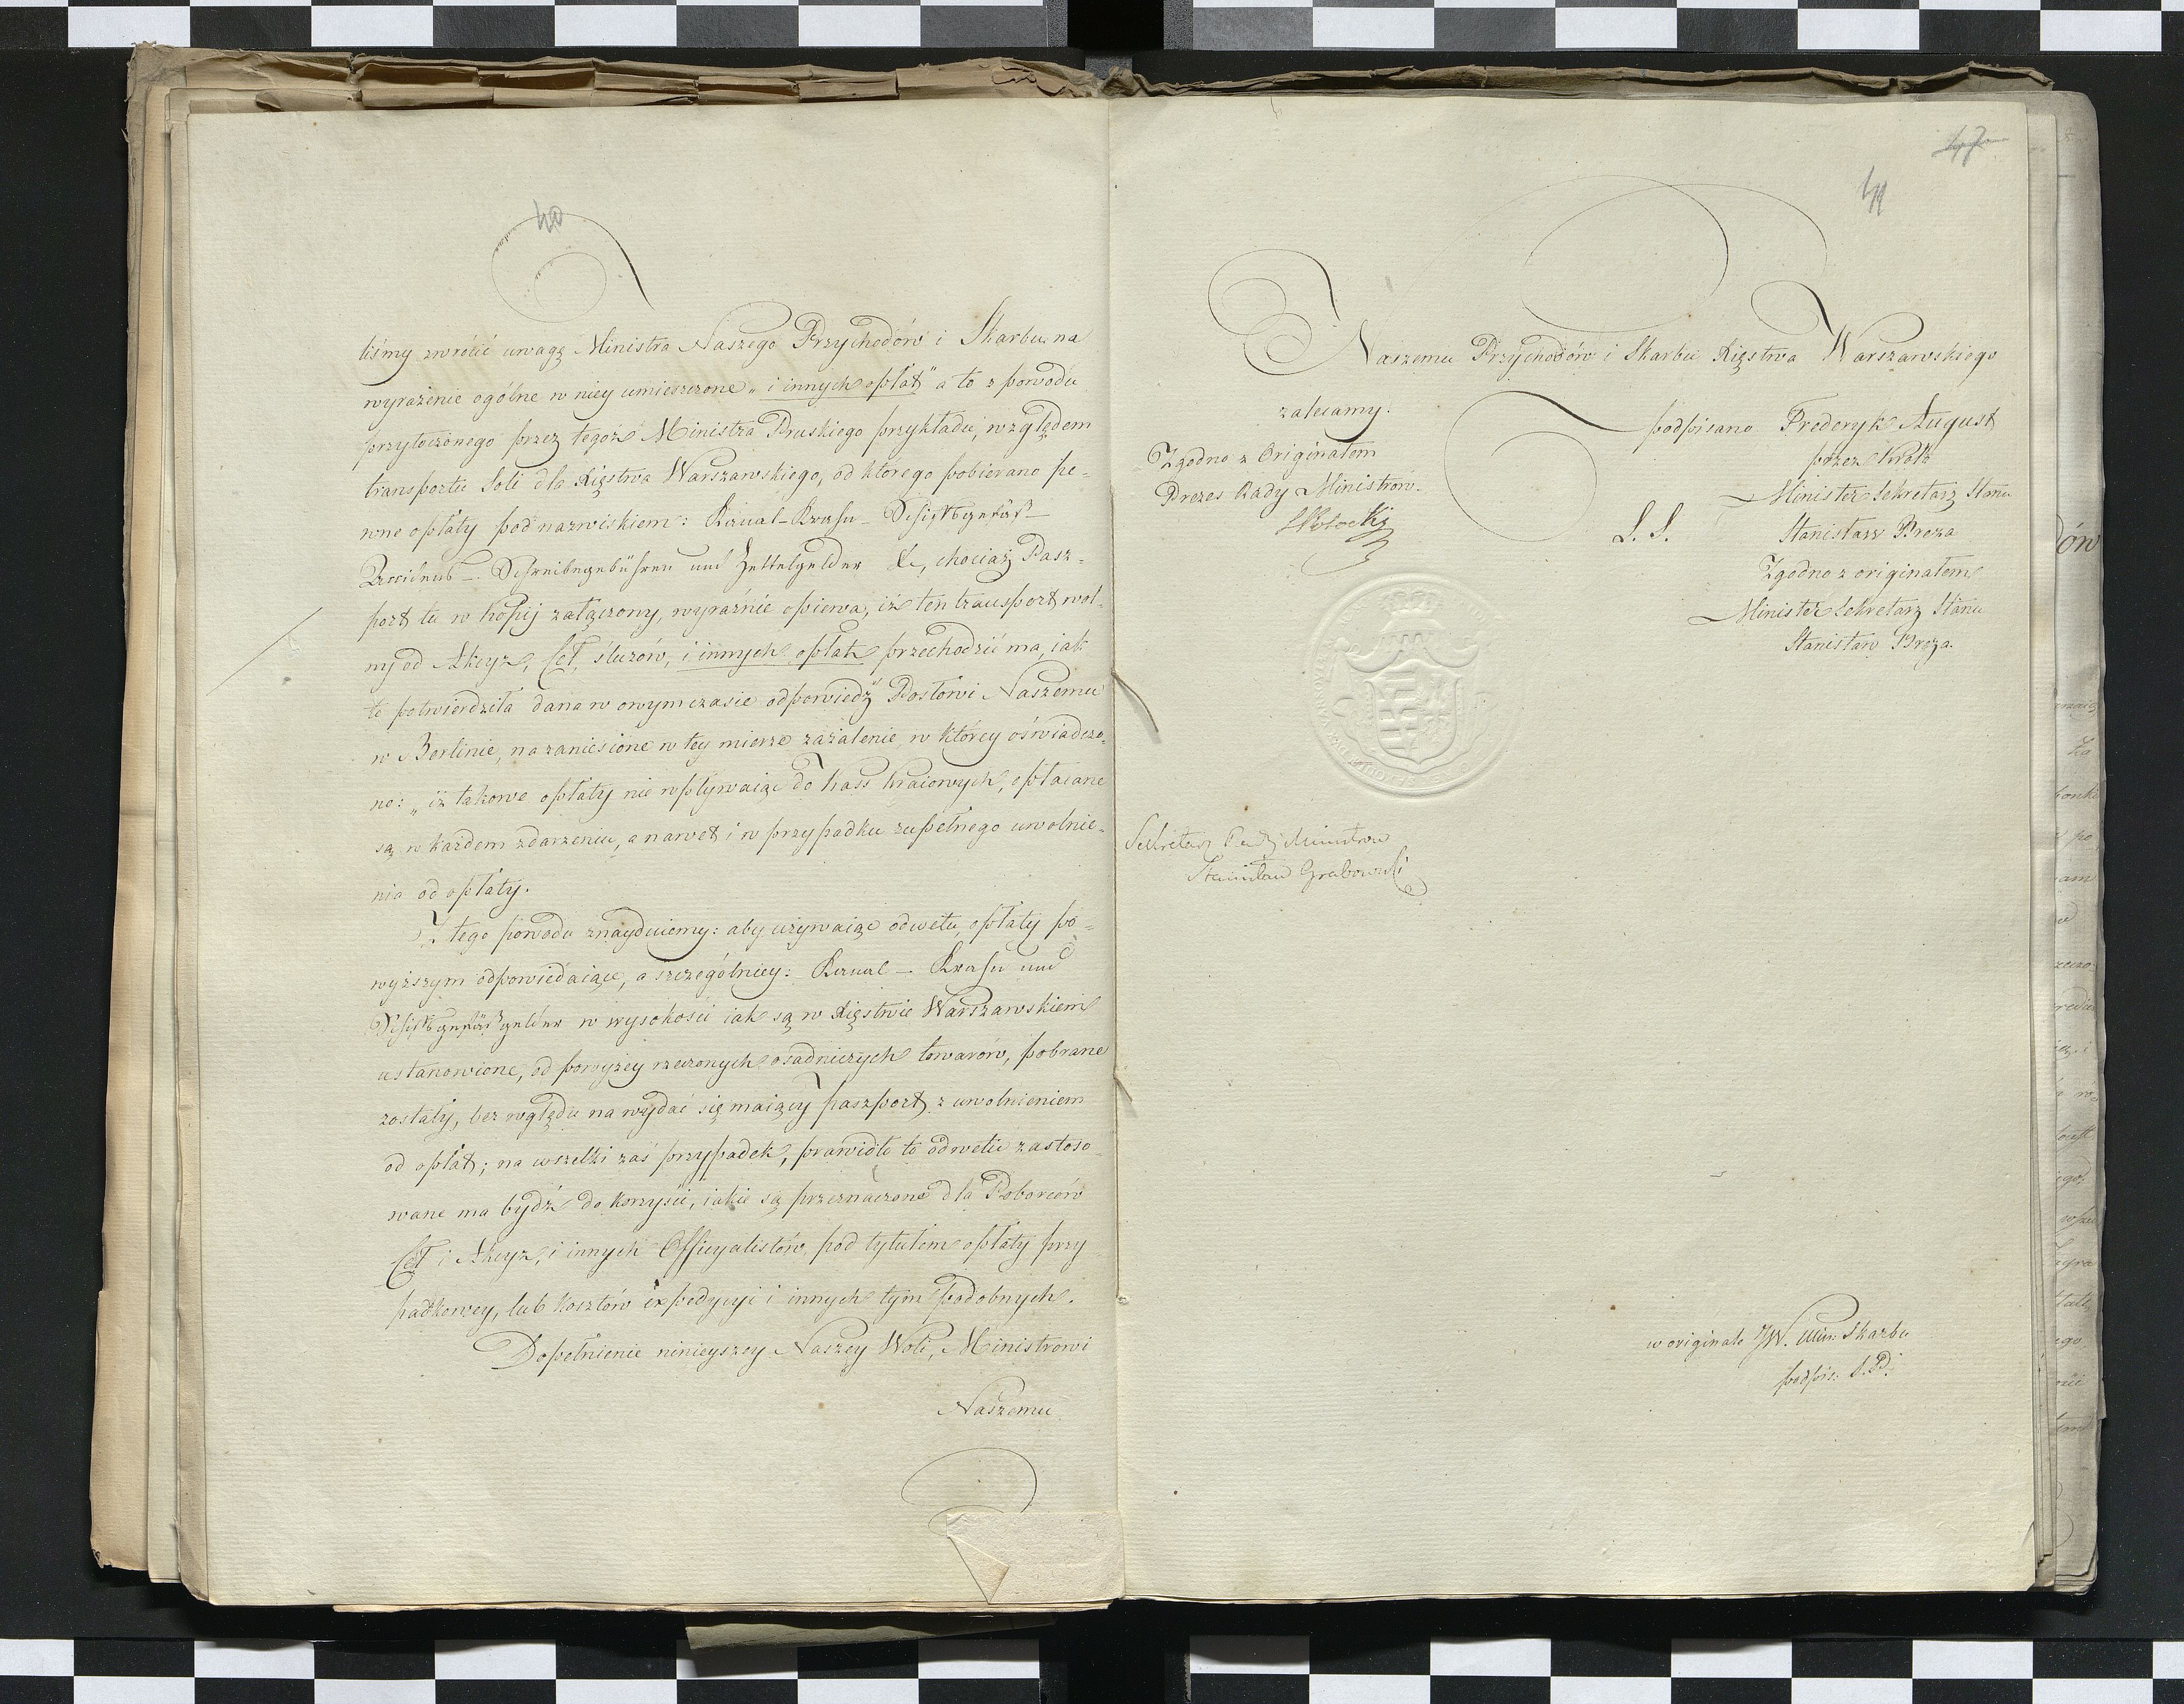 40
liśmy zwrócić uwagę Ministra Naszego Przychodów i Skarbu na
wyrażenie ogólne w niey umieszczone „i innych opłat" a to z powodu
przytoczonego przez tegoż Ministra Pruskiego przykładu, względem
transportu Soli dla Xięstwa Warszawskiego, od ktorego pobierano pe-
wne opłaty pod nazwiskiem: Kanal-Krahn-Schiffsgefäß-
Schreibegebühren und Zettelgelder &c, chociaż Pasz-
port tu w kopij załączony, wyraźnie opiewa, iż ten transport wol-
ny od Akcyz, Ceł, śluzów, i innych opłat przechodzić ma, iak
to potwierdziła dana w owym czasie odpowiedź Posłowi Naszemu
w Berlinie, na zaniesione w tey mierze zażalenie w którey oświadczo-
no: „iż takowe opłaty nie wpływaiąc do kass kraiowych, opłacane
są w każdem zdarzeniu, a nawet i w przypadku zupełnego uwolnie-
nia od opłaty.
Z tego powodu znayduiemy: aby używaiąc odwetu, opłaty po-
wyższym odpowiedaiące, a szczególniey: Kanal - Krahn und
Schiffsgefäßgelder w wysokości iak są w Xięstwie Warszawskiem
ustanowione, od powyżey rzeczonych osadniczych towarów, pobrane
zostały, bez względu na wydać się maiący paszport z uwolnieniem
od opłat; na wszelki zaś przypadek, prawidło to odwetu zastoso-
wane ma bydź do korzyści, iakie są przeznaczone dla Poborców
Ceł i Akcyz, i innych Officyalistów, pod tytułem opłaty przy-
padkowey, lub kosztów expedycyi i innych tym podobnych.
Dopełnienie ninieyszey Naszey Woli, Ministrowi
Naszemu
47
41
Naszemu Przychodów i Skarbu Xięstwa Warszawskiego
zalecamy.
podpisano Frederyk August
przez Króla
Minister Sekretarz Stanu
L. S. Stanisław Breza
Zgodno z originałem
Minister Sekretarz Stanu
Stanisław Breza.
Zgodno z Originałem
Prezes Rady Ministrów.
Potocki
Sekretarz Rady Ministrow
Stanisław Grabowski
w originale JW. Min: Skarbu
podpis: